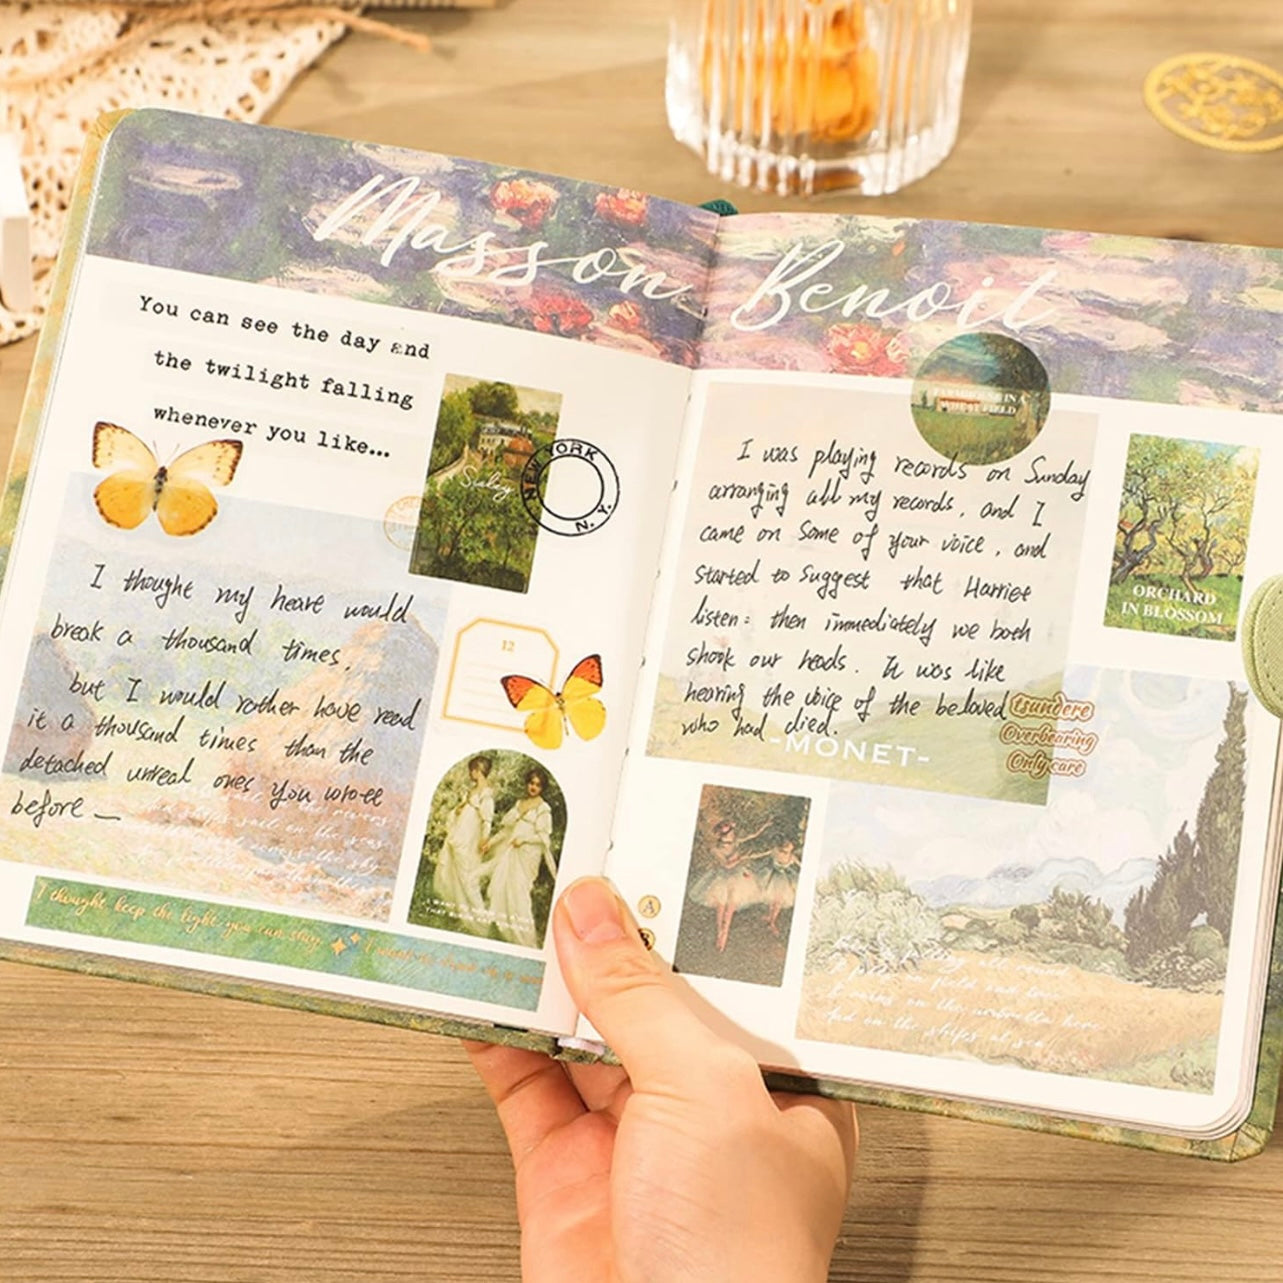 Masson Benoit
You can see the day and
the twilight falling
whenever you like...
Sisley
NEW YORK
N. Y.
I thought my heart would
break a thousand times,
but I would rather have read
it a thousand times than the
detached unreal ones you wrote
before —
12
I thought keep the light you can stay
I was playing records on Sunday
arranging all my records, and I
came on some of your voice, and
started to suggest that Harriet
listen: then immediately we both
shook our heads. It was like
hearing the voice of the beloved
who had died.
-MONET-
FIELD
ORCHARD
IN BLOSSOM
tsundere
Overbearing
Only care
A
B
field and
on the umbrella here
And on the ships at sea